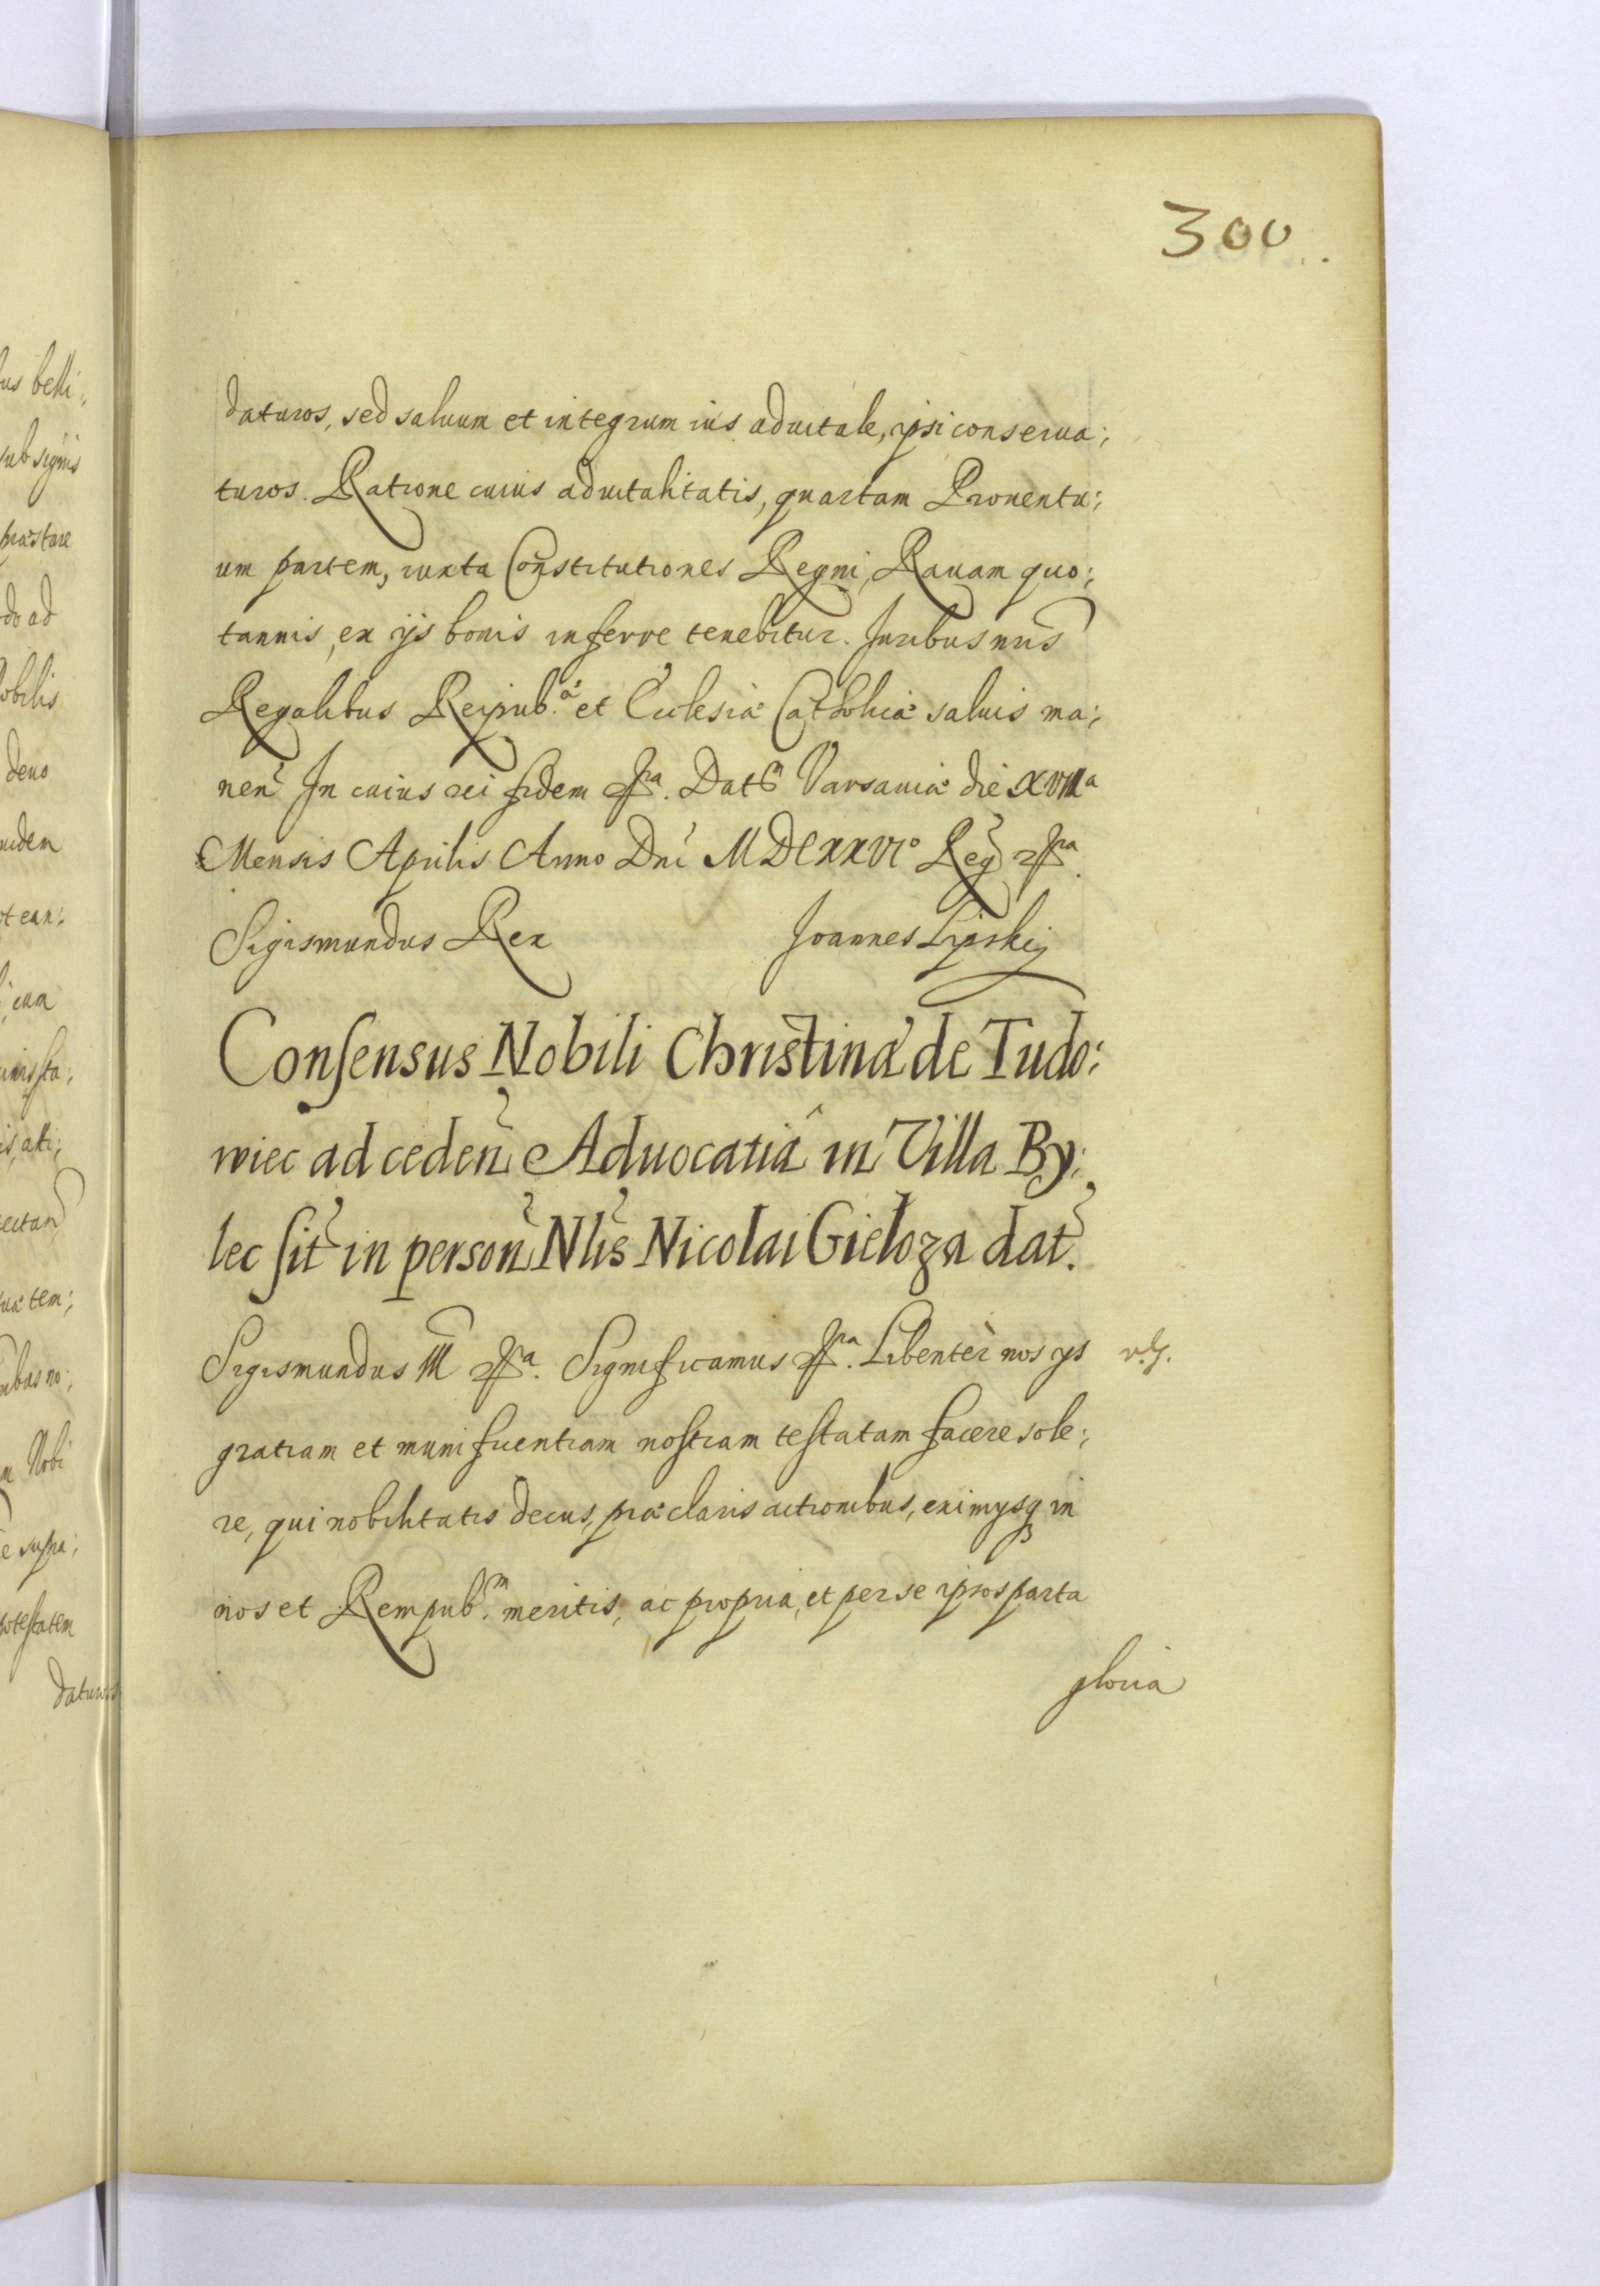 300
daturos, sed saluum et integrum ius aduitale, ipsi conserua:
turos. Ratione cuius aduitalitatis, quartam Prouentu:
um partem, iuxta Constitutiones Regni, Rauam quo:
tannis, ex ijs bonis inferre tenebitur. Iuribus nris
Regalibus Reipub. æ et Ecclesiæ Catholicæ saluis ma:
nen In cuius rei fidem &ra. Datm Varsauiæ die XVIIIa
Mensis Aprilis Anno Dni MDCXXVIo Reg &ra.
Sigismundus Rex Joannes Lipskij
Consensus Nobili Christinæ de Tudo:
wiec ad ceden Aduocatiâ in Villa By:
lec sit in person Nlis Nicolai Gieloza dat.
Sigismundus III &ra. Significamus &ra. Libenter nos ijs
gratiam et munificentiam nostram testatam facere sole:
re, qui nobilitatis decus, præclaris actionibus, eximijsq in
nos et Rempub.m meritis, ac propria, et per se ipsos parta
gloria
daturos